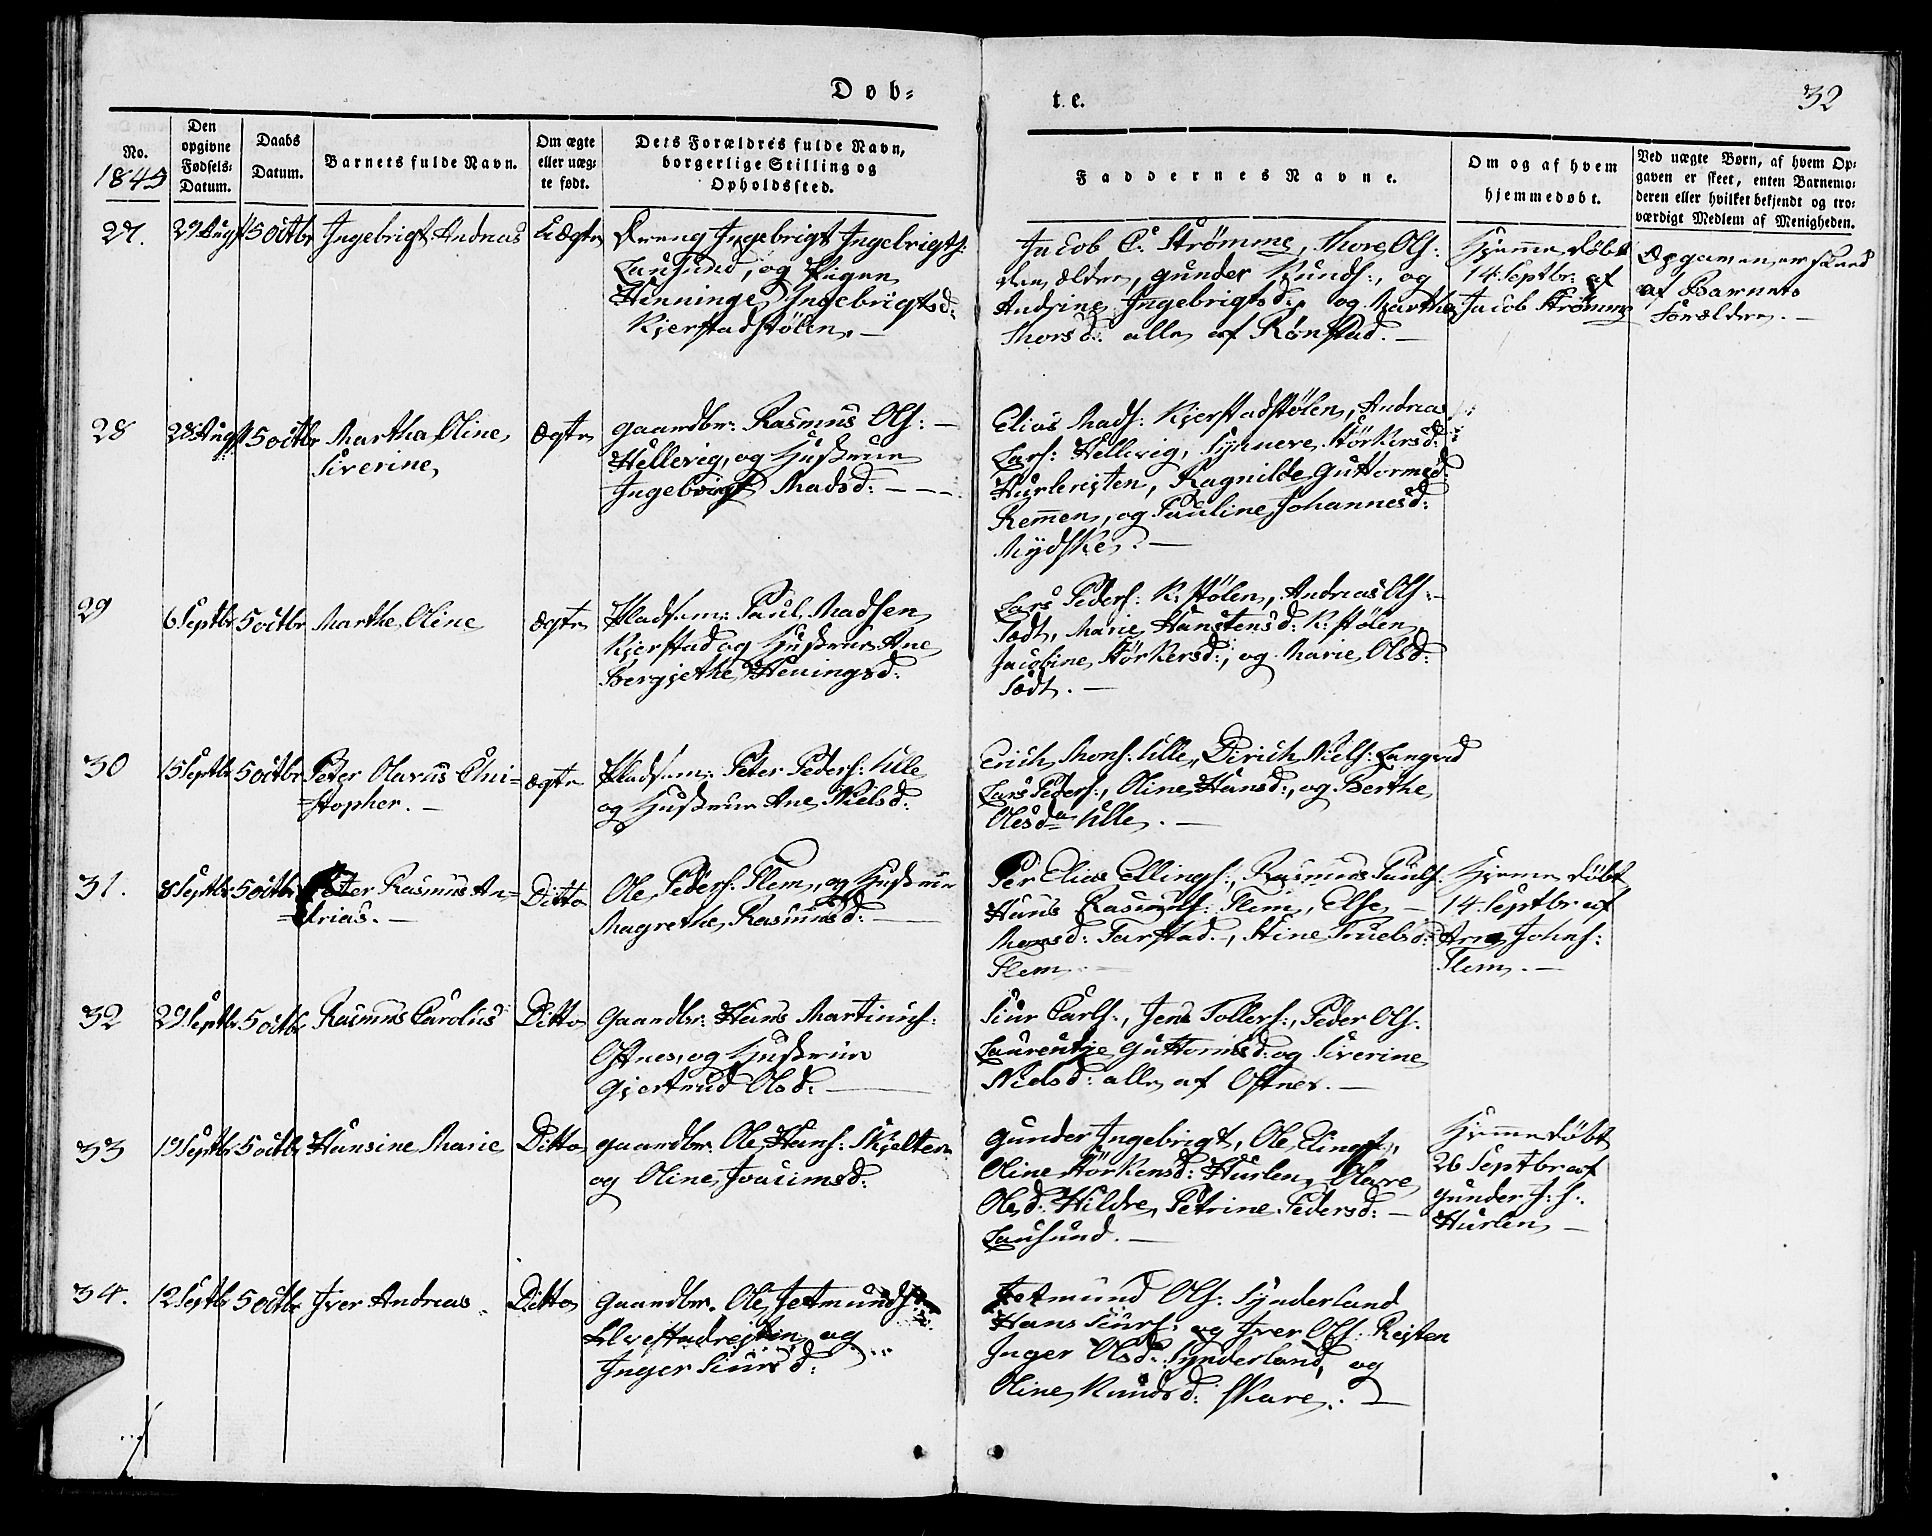 Døb=
t e.
32
No.
1845
Den
opgivne
Fødsels=
Datum.
Daabs
Datum.
Barnets fulde Navn.
Om ægte
eller uæg=
te født.
Dets Forældres fulde Navn,
borgerlige Stilling og
Opholdssted.
Faddernes Navne.
Om og af hvem
hjemmedøbt.
Ved uægte Børn, af hvem Op=
gaven er skeet, enten Barnemo=
deren eller hvilket bekjendt og tro=
værdigt Medlem af Menigheden.
27.
29 Augst
5 octbr
Ingebrigt Andreas
Uægte
Dreng Ingebrigt Ingebrigts:
Lausund, og Pigen
Henninge Ingebrigtsd:
Kjerstadstølen.
Jacob C. Strømme, Thore Ols:
den ældre, Gunder Knuds:, og
Andrine Ingebrigtsd:, og Marthe
Thorsd: alle af Rønstad. —
Hjemmedøbt
14. Septbr: af
Jacob Strømme
Opgaven er skeed
af Barnets
Forældre. —
28
28 Augst
5 octbr
Martha Oline
Siverine
Ægte
Gaardbr: Rasmus Ols: —
Hellevig, og Hustrue
Ingebrigt Madsd: — —
Elias Mads: Kjerstadstølen, Andreas
Lars: Hellevig, Synnere Størkersd:
Hurlereiten, Ragnilde Guttormsd:
Remmen, og Pauline Johannesd:
Mydske. —
29
6 Septbr
5 octbr
Marthe Oline
Ægte
Pladsm: Paul Madsen
Kjerstad og Hustrue Ane
Bergjethe Heningsd:
Lars Peders: K:stølen, Andreas Ols: —
Tødt, Marie Hanstensd: K:stølen,
Jacobine Størkersd:, og Marie Olsd:
Tødt. —
30
15 Septbr
5 octbr
Peter Olavus Chri=
=stopher. —
ægte
Pladsm: Peter Peders: Ulle
og Hustrue Ane Nielsd:
Erich Mons: Ulle, Dirich Niels: Langvad
Lars Peders:, Oline Hansd:, og Berthe
Olesda Ulle. —
31.
8 Septbr
5 octbr
Peter Rasmus An=
=drias. —
Ditto
Ole Peders: Flem, og Hustrue
Magrethe Rasmusd: —
Per Elias Ellings:, Rasmus Pauls:
Hans Rasmus: Flem, Else —
Monsd: Tarstad, Stine Truelsd:
Flem. —
Hjemmedøbt
14. Septbr af
Arne Johns:
Flem. —
32
29 Septbr
5 octbr
Rasmus Carolus
Ditto
Gaardbr: Hans Martinus:
Oftnes, og Hustrue
Gjertrud Olsd: —
Siur Carls:, Jens Tollers:, Peder Ols:
Laurentje Guttormsd: og Siverine
Nielsd: alle af Oftnes. —
33
19 Septbr
5 octbr
Hansine Marie
Ditto
Gaardbr: Ole Hans: Skjelten
og Oline Joacimsd:
Gunder Ingebrigt, Ole Elings:,
Oline Størkersd: Hurlen, Olave
Olesd: Hildre, Petrine Pedersd: —
Lausund. —
Hjemmedøbt
26 Septbr af
Gunder I:s:
Hurlen —
34.
12 Septb
5 octbr
Iver Andreas
Ditto
Gaardbr. Ole Jetmunds:
og
Inger Siursd:
Jetmund Ols: Synderland
Hans Siurs: og Iver Ols: Reiten
Inger Olsd: Synderland, og
Oline Knudsd: Skare. —